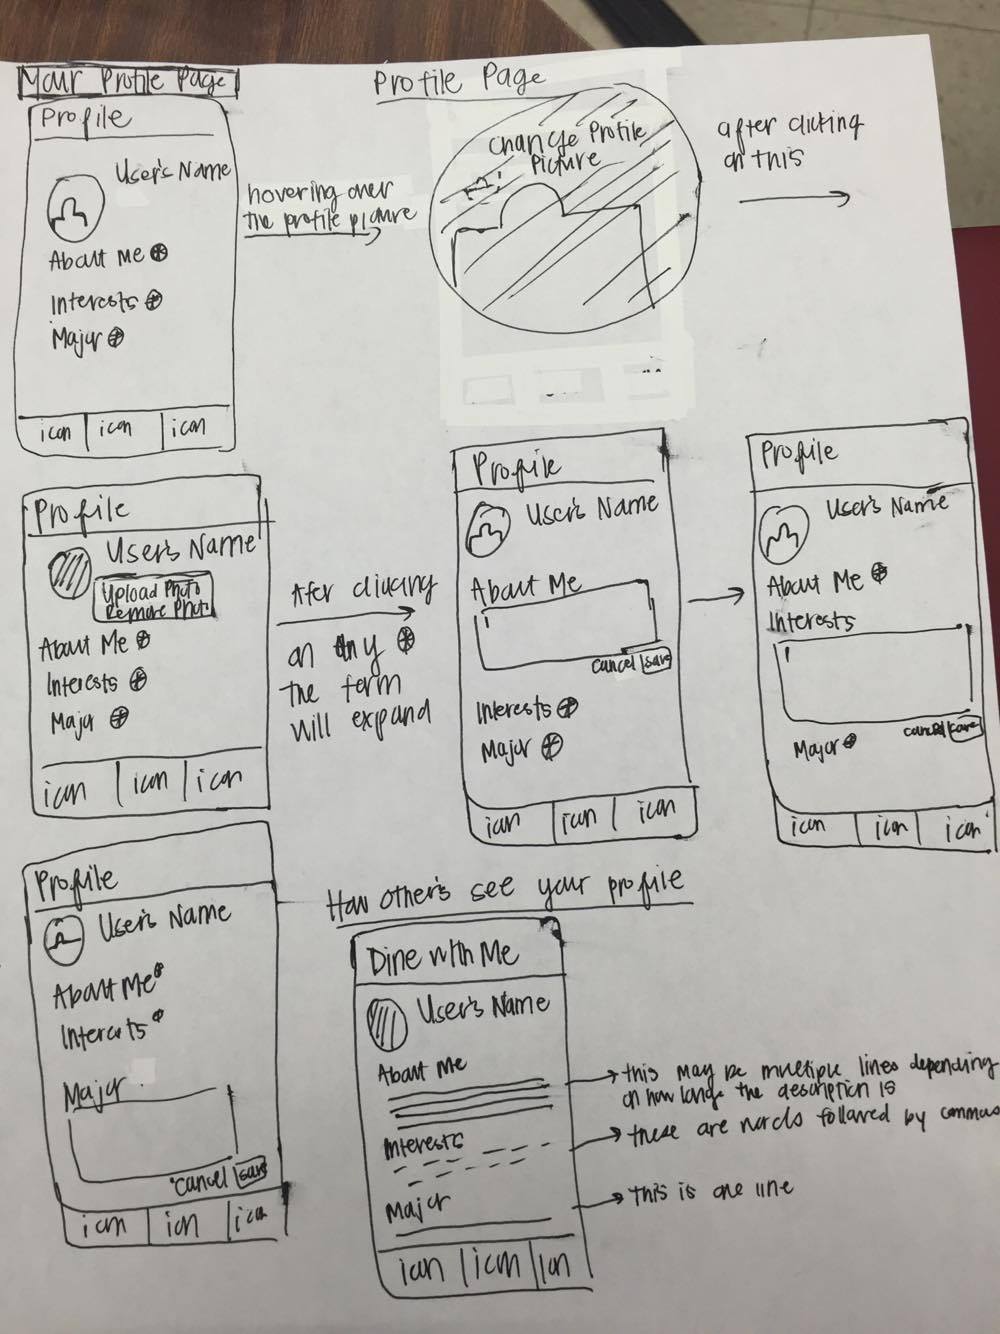 Your Profile Page
Profile
User's Name
About Me
Interests
Major
icon icon icon
hovering over
the profile picture
Profile Page
Change Profile
Picture
after clicking
on this
Profile
User's Name
Upload Photo
Remove Photo
About Me
Interests
Major
icon icon icon
After clicking
on any
the form
will expand
Profile
User's Name
About Me
cancel save
Interests
Major
icon icon icon
Profile
User's Name
About Me
Interests
cancel save
Major
icon icon icon
Profile
User's Name
About Me
Interests
Major
cancel save
icon icon icon
How other's see your profile
Dine with Me
User's Name
About Me
Interests
Major
icon icon icon
this may be multiple lines depending
on how longe the description is
these are words followed by commas
this is one line